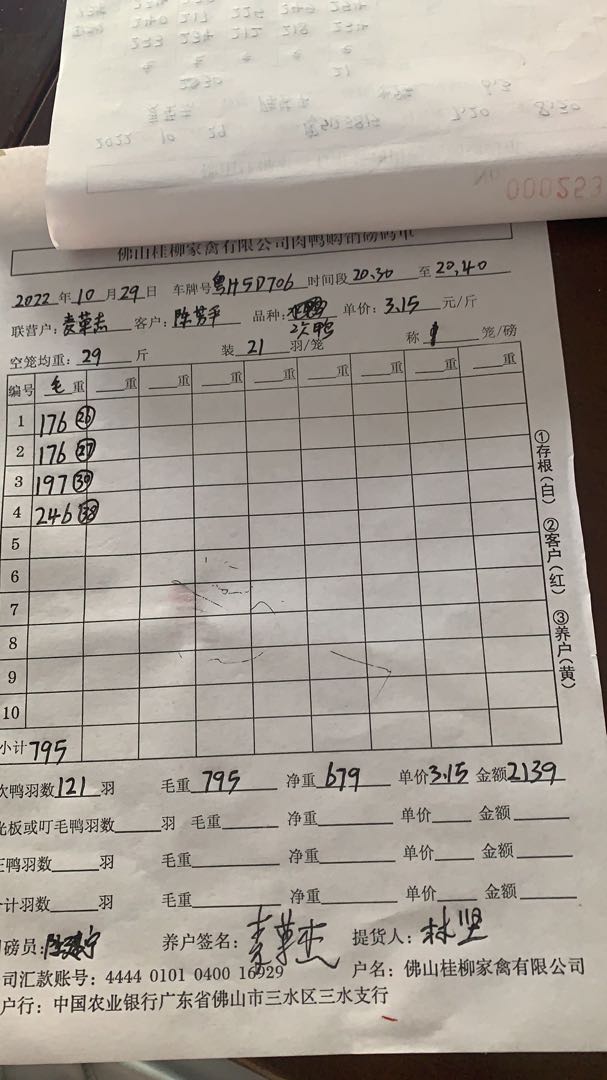 000253
佛山桂柳家禽有限公司肉鸭购销磅码单
2022年10月29日 车牌号粤H5D706 时间段20.30至20.40
联营户: 麦草杰 客户: 陈芳平 品种: 次鸭 单价: 3.15 元/斤
空笼均重: 29 斤 装 21 羽/笼 称 1 笼/磅
编号 毛重 ___重 ___重 ___重 ___重 ___重 ___重 ___重
1 176 26
2 176 27
3 197 30
4 246 38
5
6
7
8
9
10
小计 795
①存根(白) ②客户(红) ③养户(黄)
次鸭羽数121羽 毛重 795 净重 679 单价3.15 金额2139
光板或叮毛鸭羽数___羽 毛重___ 净重___ 单价___ 金额___
正鸭羽数___羽 毛重___ 净重___ 单价___ 金额___
计羽数___羽 毛重___ 净重___ 单价___ 金额___
磅员: 养户签名: 麦草杰 提货人: 林坚
司汇款账号: 4444 0101 0400 16929 户名: 佛山桂柳家禽有限公司
户行: 中国农业银行广东省佛山市三水区三水支行